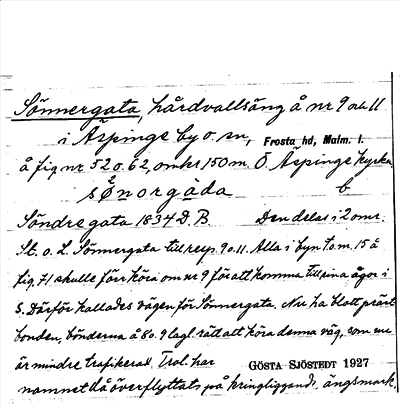 Sönnergäta, hårdvallsäng å nr 9 och 11
i Äspinge by o. sn, Frosta hd, Malm. l.
å fig. nr 52 o. 62, omkr 150 m. Ö Äspinge kyrka
sŌnorgäda b
Söndre gata 1834 D.B. Den delas i 2 omr.
St. o. L. Sönnergata till resp. 9 o. 11. Alla i byn t.o.m. 15 å
fig. 71 skulle förr köra om nr 9 för att komma till sina ägor i
S. Därför kallades vägen för Sönnergata. Nu ha blott präst
bonden, bönderna å 8 o. 9 lagl. rätt att köra denna väg, som nu
är mindre trafikerad. Trol. har GÖSTA SJÖSTEDT 1927
namnet då överflyttats på kringliggande ängsmark.